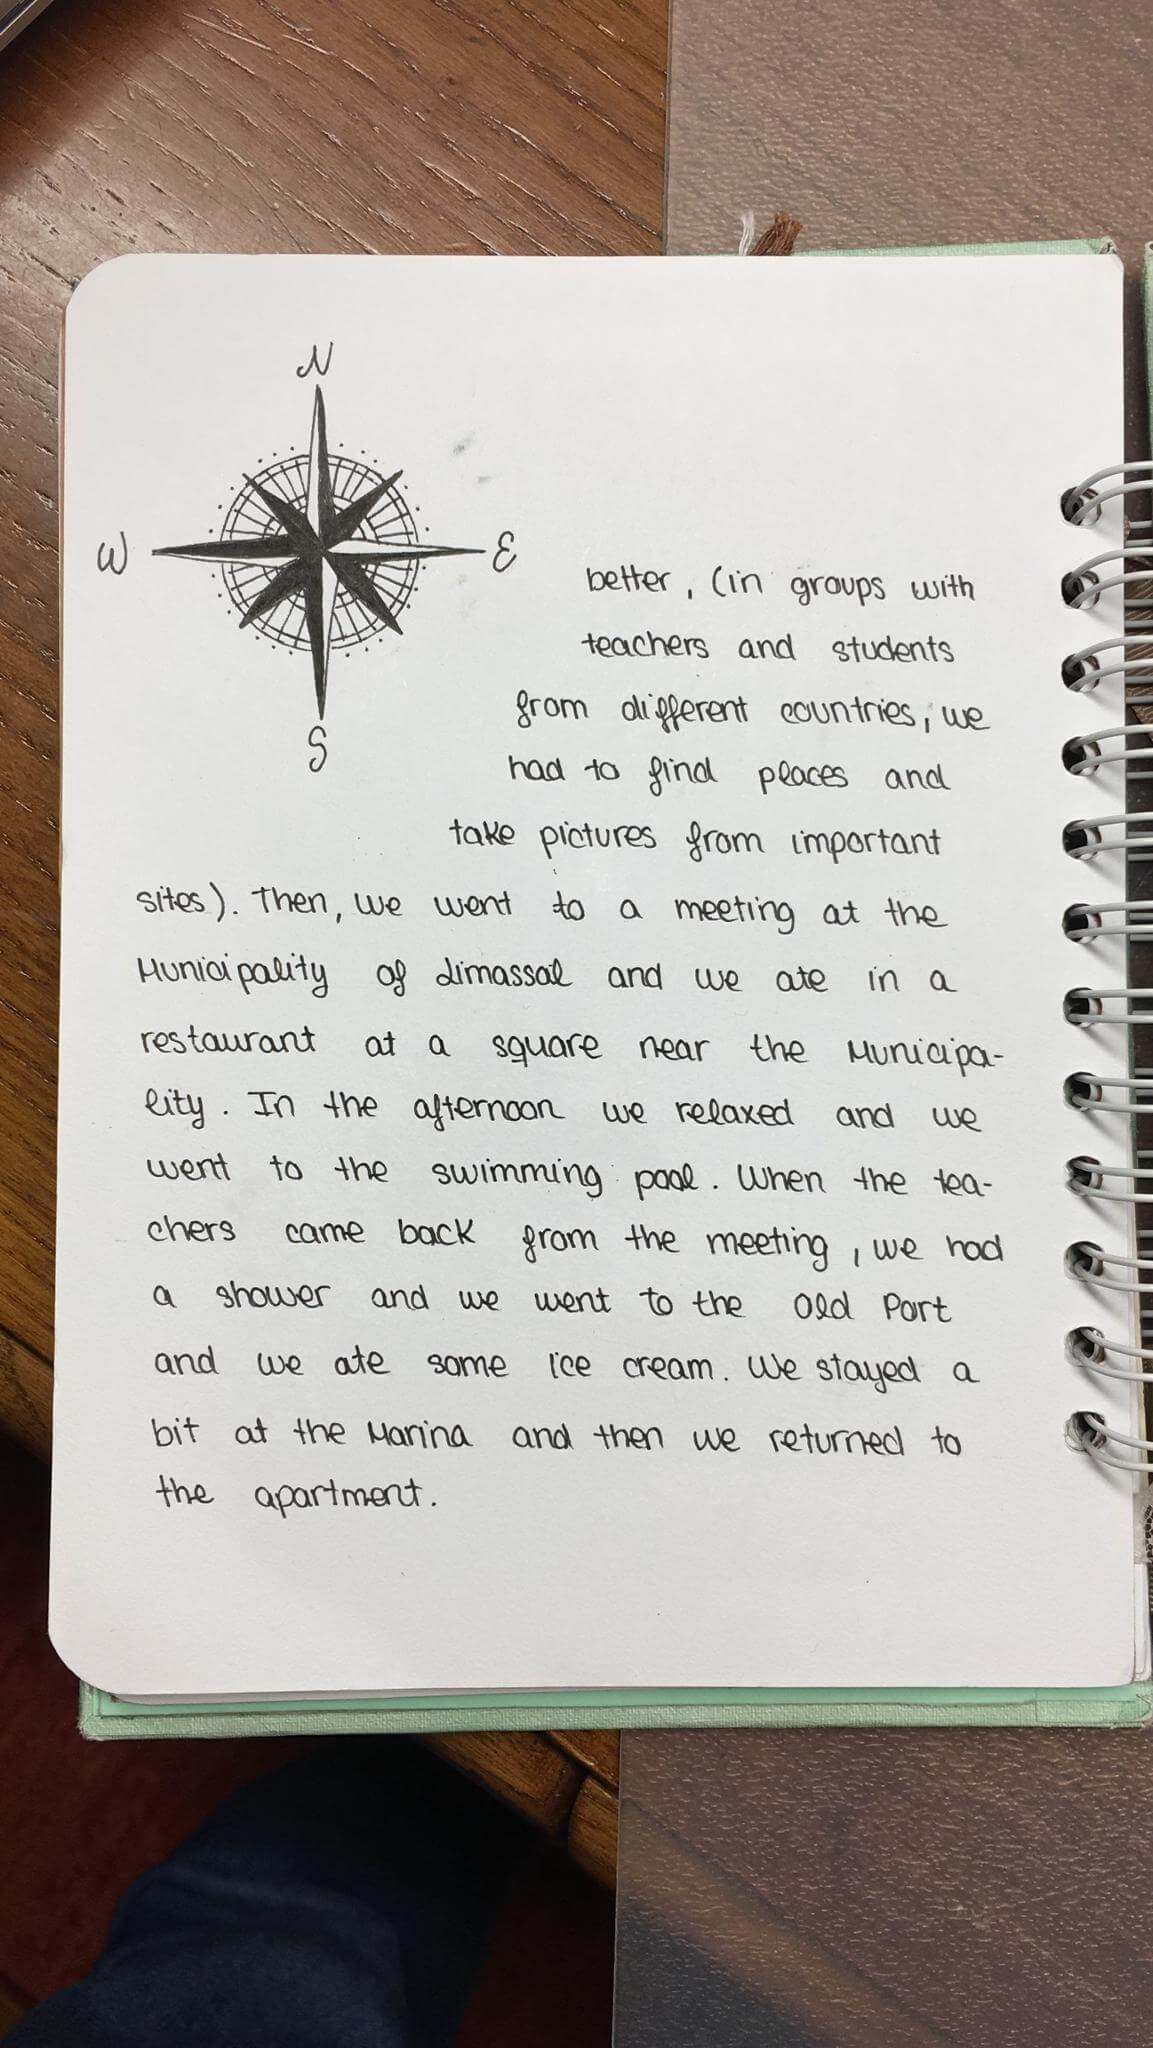 N
W
E
S
better, (in groups with
teachers and students
from different countries, we
had to find places and
take pictures from important
sites). Then, we went to a meeting at the
Municipality of Limassol and we ate in a
restaurant at a square near the Municipa-
lity. In the afternoon we relaxed and we
went to the swimming pool. When the tea-
chers came back from the meeting, we had
a shower and we went to the Old Port
and we ate some ice cream. We stayed a
bit at the Marina and then we returned to
the apartment.